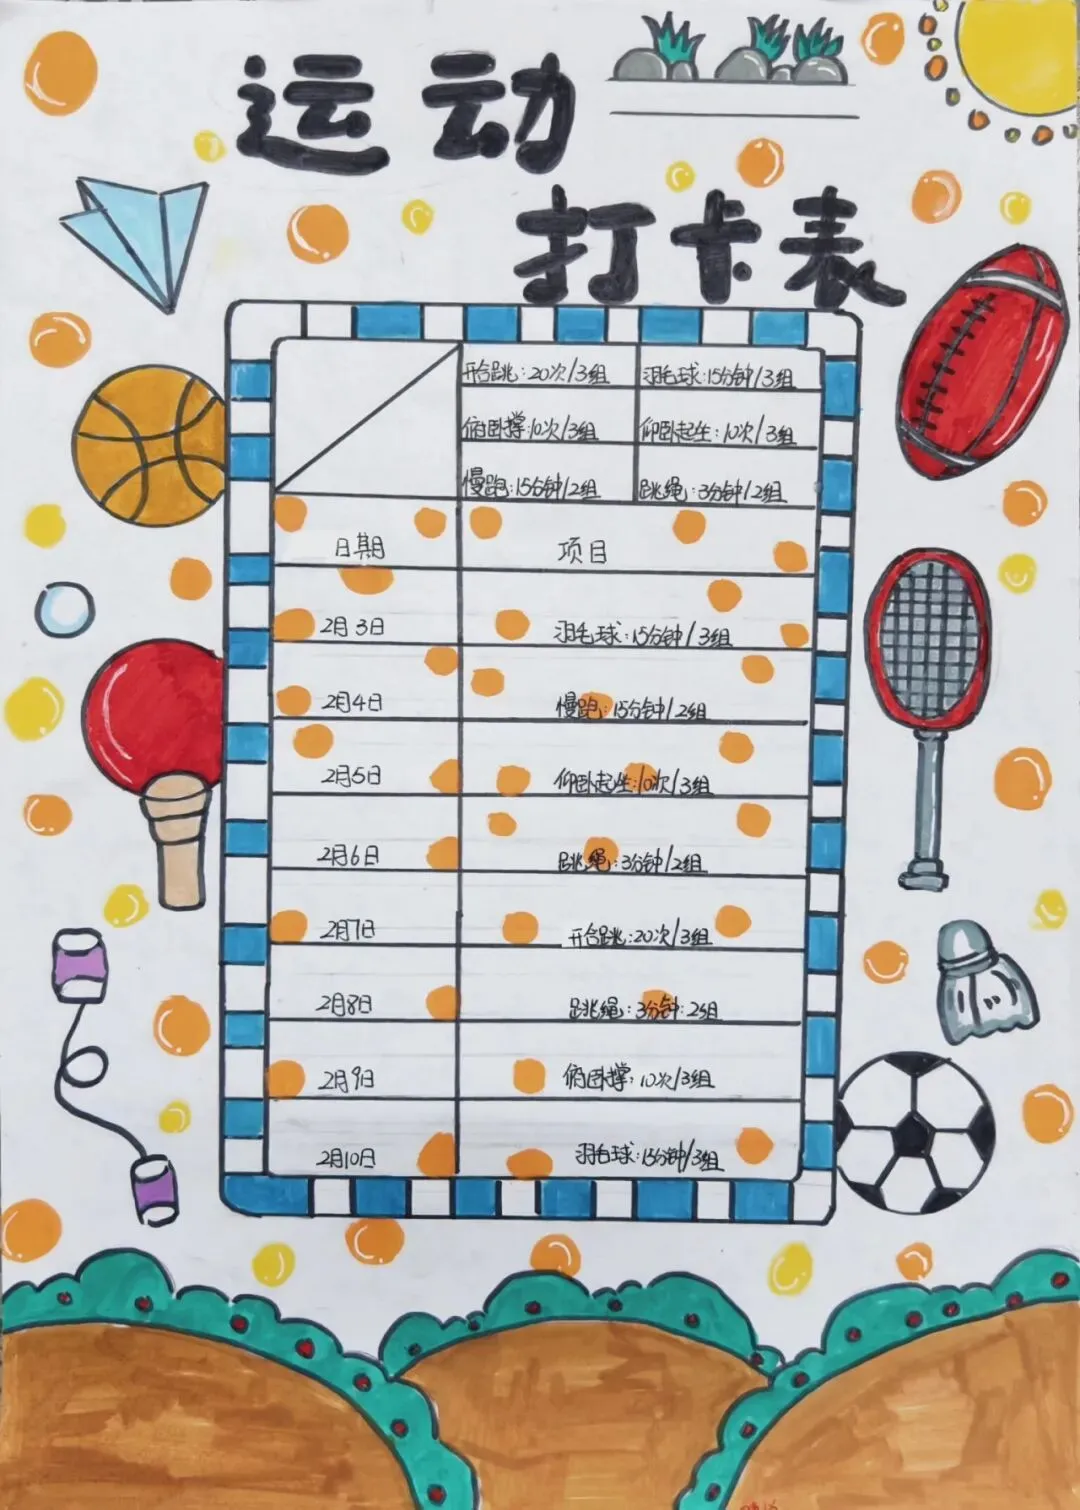 运动
打卡表
开合跳:20次/3组 羽毛球:15分钟/3组
俯卧撑:10次/3组 仰卧起坐:10次/3组
慢跑:15分钟/2组 跳绳:3分钟/2组
日期 项目
2月3日 羽毛球:15分钟/3组
2月4日 慢跑:15分钟/2组
2月5日 仰卧起坐:10次/3组
2月6日 跳绳:3分钟/2组
2月7日 开合跳:20次/3组
2月8日 跳绳:3分钟:2组
2月9日 俯卧撑:10次/3组
2月10日 羽毛球:15分钟/3组